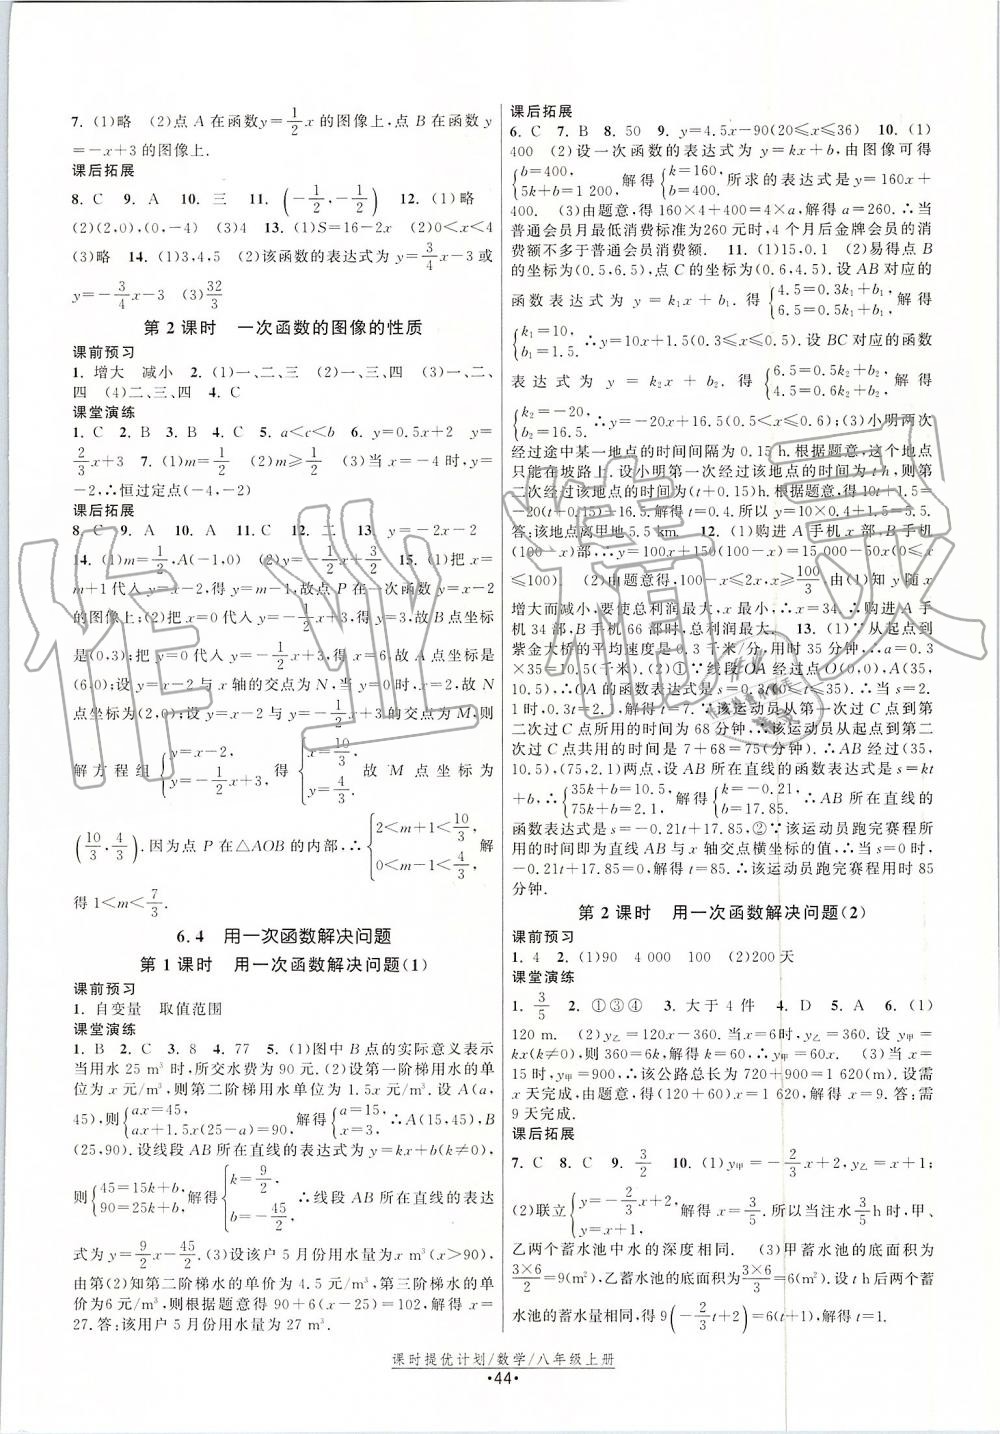 7. (1)略 (2)点 A 在函数y=1/2x 的图像上,点 B 在函数 y
=-x+3 的图像上.
课后拓展
8. C 9. A 10. 三 11. (-1/2,-1/2) 12. (1)略
(2)(2,0),(0,-4) (3)4 13. (1)S=16-2x (2)0<x<4
(3)略 14. (1)3,4,5 (2)该函数的表达式为 y=3/4x-3 或
y=-3/4x-3 (3)32/3
第 2 课时 一次函数的图像的性质
课前预习
1. 增大 减小 2. (1)一、三 (2)一、三、四 (3)一、二、
四 (4)二、三、四 4. C
课堂演练
1. C 2. B 3. B 4. C 5. a<c<b 6. y=0.5x+2 y=
2/3x+3 7. (1)m=1/2 (2)m≥1/2 (3)当 x=-4 时,y=
-2,∴恒过定点(-4,-2)
课后拓展
8. C 9. A 10. A 11. C 12. 二 13. y=-2x-2
14. (1)m=1/2,A(-1,0) (2)y=-1/2x+3/2 15. (1)把 x=
m+1代入 y=x-2,得 y=m-1,故点 P 在一次函数 y=x-2
的图像上;(2)把 x=0代入 y=-1/2x+3,得 y=3,故 B 点坐标
是(0,3);把 y=0代入 y=-1/2x+3,得 x=6,故 A 点坐标为
(6,0);设 y=x-2 与 x 轴的交点为 N,当 y=0 时,x=2,故 N
点坐标为(2,0);设 y=x-2 与 y=-1/2x+3 的交点为 M,则
解方程组{y=x-2, y=-1/2x+3, 得{x=10/3, y=4/3, 故 M 点坐标为
(10/3,4/3).因为点 P 在△AOB 的内部,∴{2<m+1<10/3, 0<m-1<4/3, 解
得 1<m<7/3.
6.4 用一次函数解决问题
第 1 课时 用一次函数解决问题(1)
课前预习
1. 自变量 取值范围
课堂演练
1. B 2. C 3. 8 4. 77 5. (1)图中 B 点的实际意义表示
当用水 25 m³时,所交水费为 90 元. (2)设第一阶梯用水的单
价为 x 元/m³,则第二阶梯用水单位为 1.5x 元/m³. 设 A(a,
45),则{ax=45, ax+1.5x(25-a)=90, 解得{a=15, x=3, ∴A(15,45),B
(25,90).设线段 AB 所在直线的表达式为 y=kx+b(k≠0),
则{45=15k+b, 90=25k+b, 解得{k=9/2, b=-45/2. ∴线段 AB 所在直线的表达
式为 y=9/2x-45/2. (3)设该户 5 月份用水量为 x m³(x>90),
由第(2)知第二阶梯水的单价为 4.5 元/m³,第三阶梯水的单
价为6 元/m³,则根据题意得 90+6(x-25)=102,解得 x=
27.答:该用户 5 月份用水量为 27 m³.
课后拓展
6. C 7. B 8. 50 9. y=4.5x-90(20≤x≤36) 10. (1)
400 (2)设一次函数的表达式为 y=kx+b,由图像可得
{b=400, 5k+b=1 200, 解得{k=160, b=400. 所求的表达式是 y=160x+
400. (3)由题意,得 160×4+400=4×a,解得 a=260.∴当
普通会员月最低消费标准为260 元时,4 个月后金牌会员的消
费额不多于普通会员消费额. 11. (1)15,0.1 (2)易得点 B
的坐标为(0.5,6.5),点 C 的坐标为(0.6,4.5).设 AB 对应的
函数表达式为 y=k₁x+b₁. 得{4.5=0.3k₁+b₁, 6.5=0.5k₁+b₁, 解得
{k₁=10, b₁=1.5. ∴y=10x+1.5(0.3≤x≤0.5). 设 BC 对应的函数
表达式为 y=k₂x+b₂. 得{6.5=0.5k₂+b₂, 4.5=0.6k₂+b₂, 解得
{k₂=-20, b₂=16.5. ∴y=-20x+16.5(0.5<x≤0.6);(3)小明两次
经过途中某一地点的时间间隔为 0.15 h.根据题意,该地点
只能在坡路上.设小明第一次经过该地点的时间为 t h,则第
二次经过该地点的时间为(t+0.15)h.根据题意,得 10t+1.5=
-20(t+0.15)+16.5.解得 t=0.4.所以 y=10×0.4+1.5=5.5.
答:该地点离甲地 5.5 km. 12. (1)购进 A 手机 x 部,B 手机
(100-x)部,∴y=100x+150(100-x)=15 000-50x(0≤x
≤100). (2)由题意得,100-x≤2x,x≥100/3 由(1)知 y 随 x
增大而减小,要使总利润最大,x 最小,∴x=34.∴购进 A 手
机 34 部,B 手机 66 部时,总利润最大. 13. (1)∵从起点到
紫金大桥的平均速度是 0.3 千米/分,用时 35 分钟,∴a=0.3
×35=10.5(千米).(2)①∵线段OA 经过点 O(0,0),A(35,
10.5),∴OA 的函数表达式是 s=0.3t(0≤t≤35).∴当 s=2.
1 时,0.3t=2.1,解得 t=7.∵该运动员从第一次过 C 点到第
二次过 C 点所用的时间为 68 分钟,∴该运动员从起点到第二
次过 C 点共用的时间是 7+68=75(分钟).∴AB 经过(35,
10.5),(75,2.1)两点,设 AB 所在直线的函数表达式是 s=kt
+b,∴{35k+b=10.5, 75k+b=2.1, 解得{k=-0.21, b=17.85. ∴AB 所在直线的
函数表达式是 s=-0.21t+17.85,②∵该运动员跑完赛程所
用的时间即为直线 AB 与 x 轴交点横坐标的值,∴当 s=0 时,
-0.21t+17.85=0,解得 t=85.∴该运动员跑完赛程用时 85
分钟.
第 2 课时 用一次函数解决问题(2)
课前预习
1. 4 2. (1)90 4 000 100 (2)200 天
课堂演练
1. 3/5 2. ①③④ 3. 大于 4 件 4. D 5. A 6. (1)
120 m. (2)y乙=120x-360. 当 x=6时,y乙=360. 设 y甲=
kx(k≠0),则 360=6k.∴k=60.∴y甲=60x. (3)当 x=
15 时,y甲=900.∴该公路总长为 720+900=1 620(m).设需
x 天完成.由题意,得(120+60)x=1 620,解得 x=9.答:需
9 天完成.
课后拓展
7. C 8. C 9. 3/2 10. (1)y甲=-2/3x+2,y乙=x+1;
(2)联立{y=-2/3x+2, y=x+1, 解得 x=3/5. 所以当注水3/5h 时,甲、
乙两个蓄水池中水的深度相同. (3)甲蓄水池的底面积为
3×6/2=9(m²),乙蓄水池的底面积为3×6/3=6(m²). 设 t h 后两个蓄
水池的蓄水量相同,得 9(-2/3t+2)=6(t+1),解得 t=1.
课时提优计划/数学/八年级上册
·44·
作业精灵